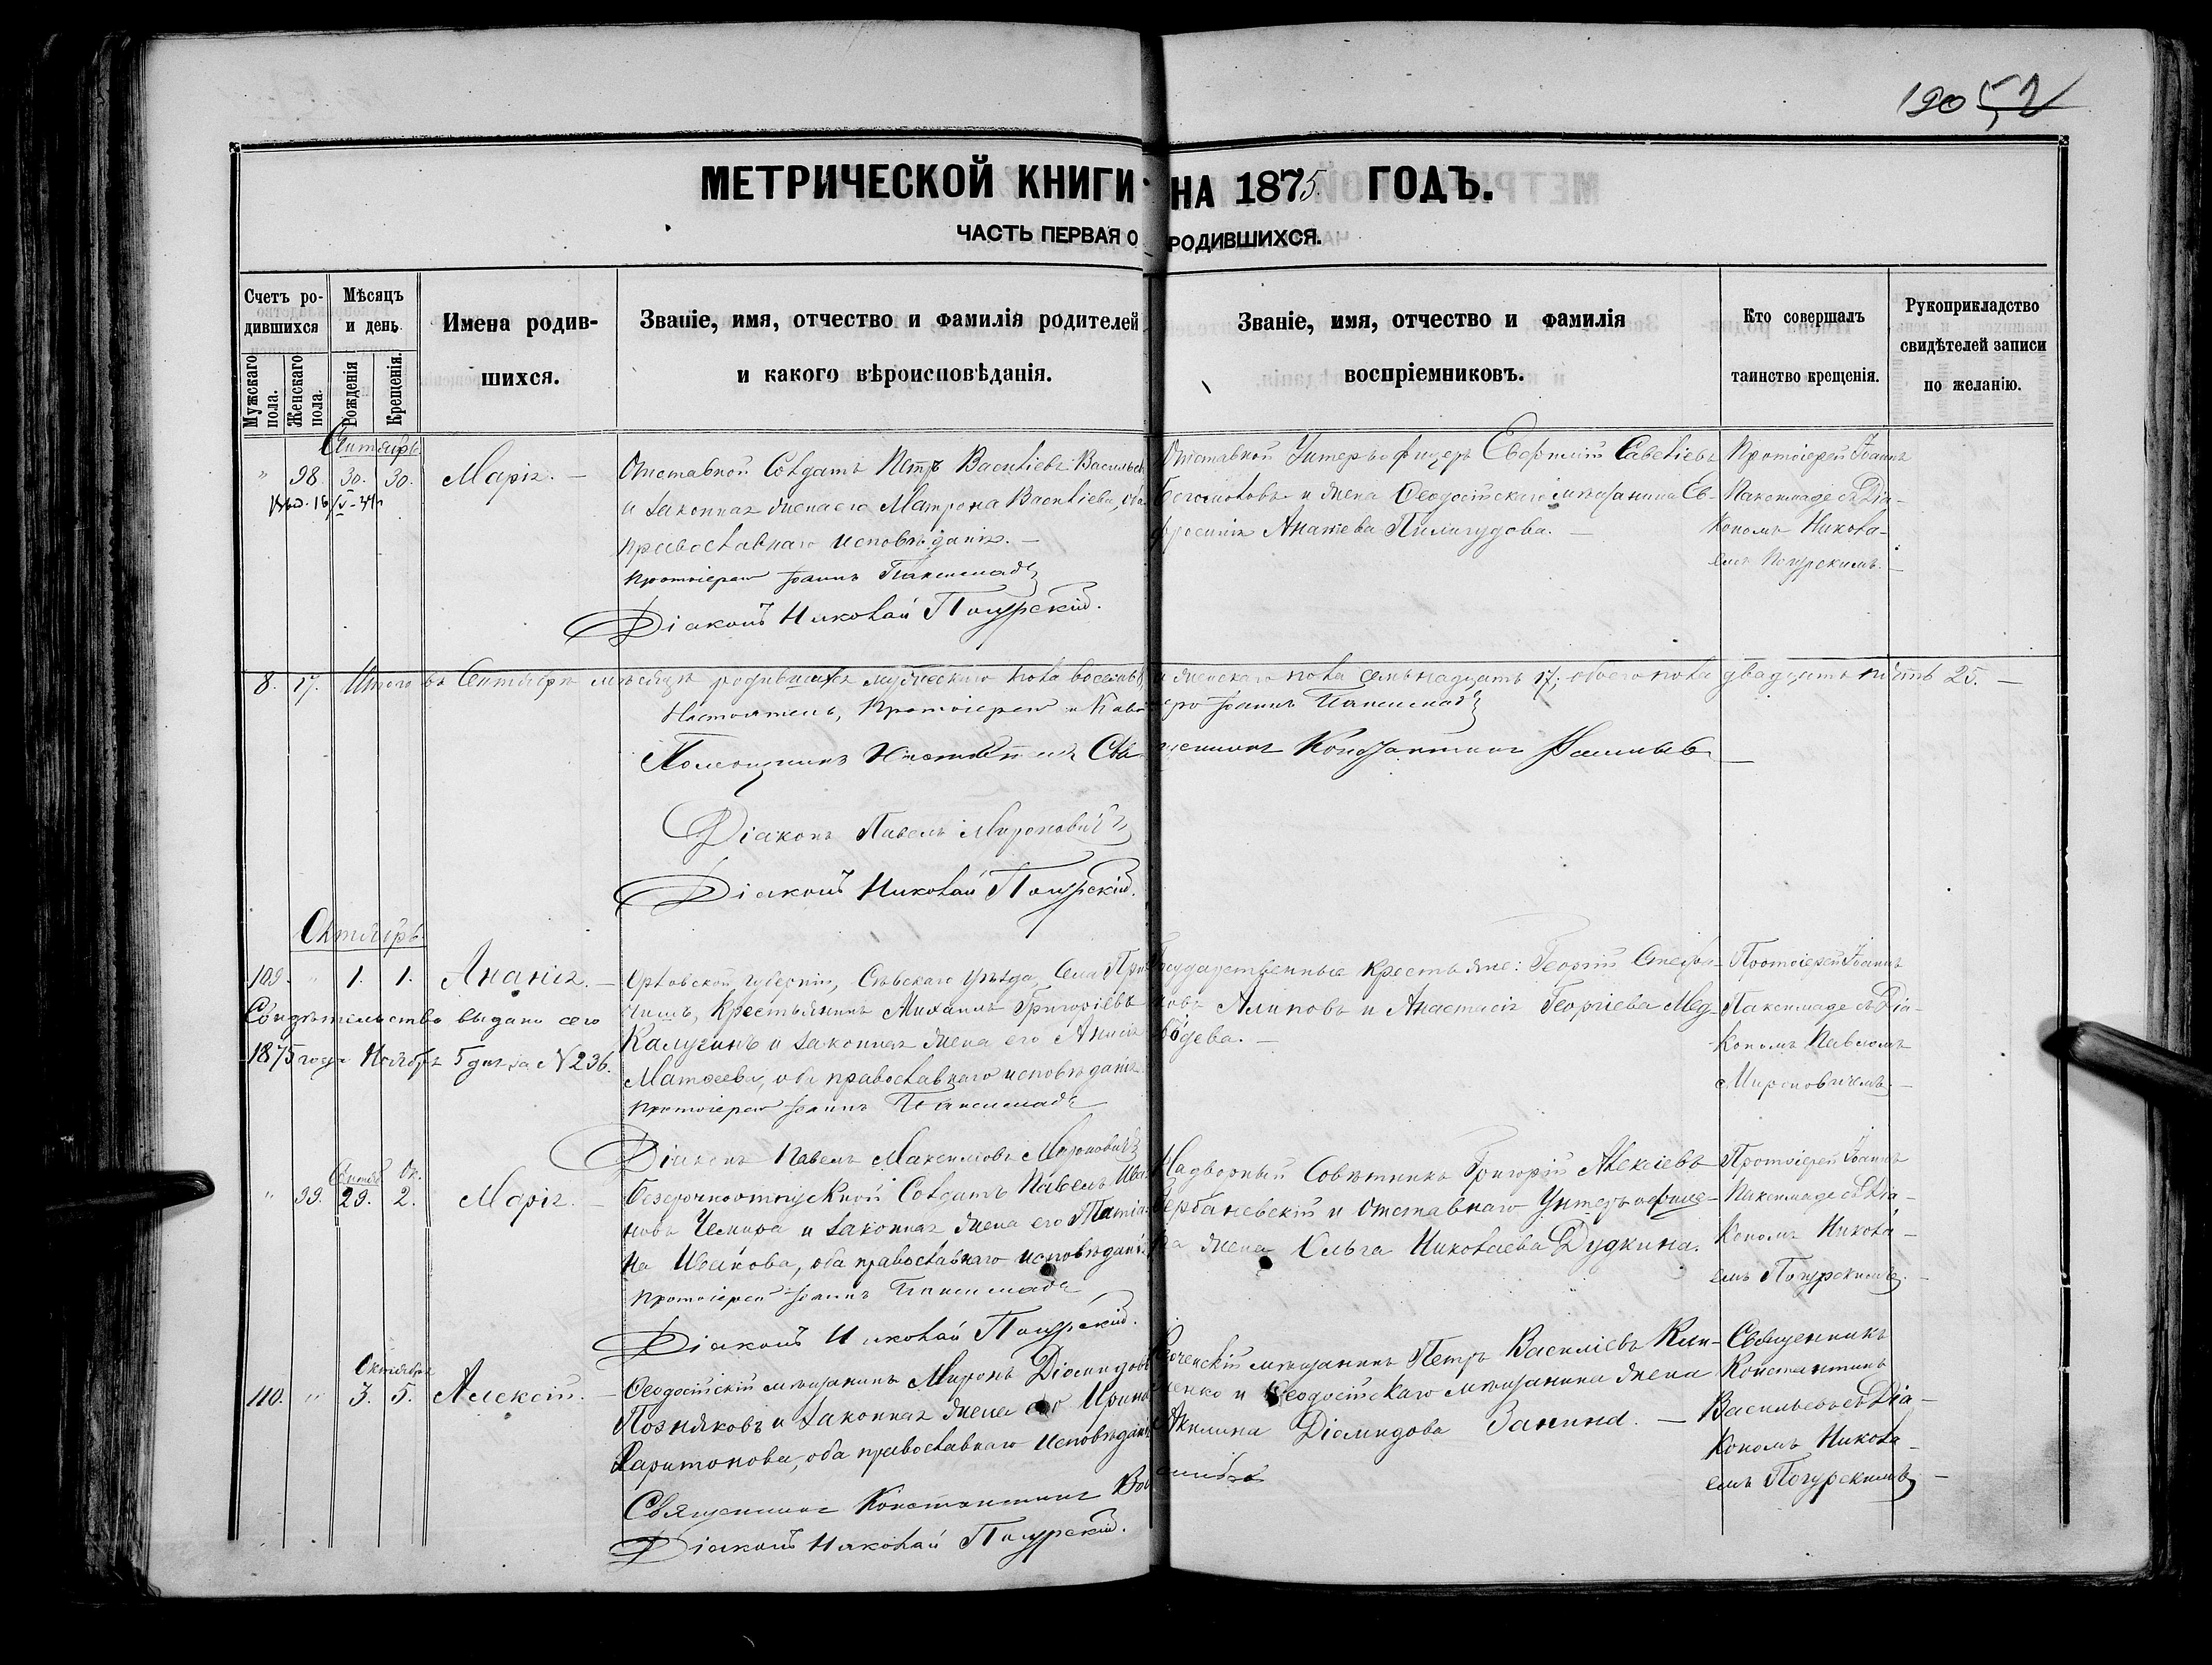 190 52
МЕТРИЧЕСКОЙ КНИГИ НА 1875 ГОДЪ.
ЧАСТЬ ПЕРВАЯ О РОДИВШИХСЯ.
Счетъ родившихся
Мужскаго пола.
Женскаго пола.
Мѣсяцъ и день
Рожденія
Крещенія.
Имена родив-
шихся.
Званіе, имя, отчество и фамилія родителей
и какого вѣроисповѣданія.
Званіе, имя, отчество и фамилія
воспріемниковъ.
Кто совершалъ
таинство крещенія.
Рукоприкладство
свидѣтелей записи
по желанію.
Сентябрь
" 98. 30. 30. Марія. —
Отставной Солдатъ Петръ Васильевъ
и законная жена его Матрона Васильева, оба
православнаго исповѣданія. —
Протоіерей Іоаннъ Паксимаде
Діаконъ Николай Погурскій.
Отставной Унтеръ-офицеръ Евфимій Савельевъ
Богомоловъ и жена Ѳеодосійскаго мѣщанина Ев-
фросинія
Протоіерей Іоаннъ
Паксимаде съ Діа-
кономъ Никола-
емъ Погурскимъ. —
8. 17. Итого въ Сентябрѣ мѣсяцѣ родившихся мужескаго пола восемь, и женскаго пола семьнадцать 17; обоего пола двадцать пять 25. —
Настоятель, Протоіерей и Кавалеръ Іоаннъ Паксимаде
Помощникъ Настоятеля Священникъ Константинъ Васильевъ
Діаконъ Павелъ Мироновичъ
Діаконъ Николай Погурскій.
Октябрь
109. " 1. 1. Ананія. —
Свидѣтельство выдано сего
1875 года Ноября 5 дня за N 236.
Орловской губерніи, Сѣвскаго уѣзда, Села
Крестьянинъ Михаилъ Григоріевъ
Калугинъ и законная жена его Анисія
Матѳеева, оба православнаго исповѣданія
Протоіерей Іоаннъ Паксимаде
Діаконъ Павелъ Максимовъ Мироновичъ
Государственные Крестьяне: Георгій Стефа-
новъ Алиповъ и Анастасія Георгіева Мед-
вѣдева. —
Протоіерей Іоаннъ
Паксимаде съ Діа-
кономъ Павломъ
Мироновичемъ. —
Сентяб. Ок.
" 99. 29. 2. Марія. —
Безсрочноотпускной Солдатъ Павелъ Ива-
новъ Чемира и законная жена его Татія-
на Ивакова, оба православнаго исповѣданія.
Протоіерей Іоаннъ Паксимаде
Діаконъ Николай Погурскій.
Надворный Совѣтникъ Григорій Алексіевъ
Вербаневскій и Отставнаго Унтеръ офице-
ра жена Ольга Николаева Дудкина.
Протоіерей Іоаннъ
Паксимаде съ Діа-
кономъ Никола-
емъ Погурскимъ. —
Октября
110. " 3. 5. Алексій. —
Ѳеодосійскій мѣщанинъ Миронъ Діомидовъ
Позняковъ и законная жена его Ирина
Харитонова, оба православнаго исповѣданія
Священникъ Константинъ Васильевъ
Діаконъ Николай Погурскій.
мѣщанинъ Петръ Василіевъ Кли-
менко и Ѳеодосійскаго мѣщанина жена
Акилина Діомидова Занина. —
Священникъ
Константинъ
Васильевъ съ Діа-
кономъ Никола-
емъ Погурскимъ —